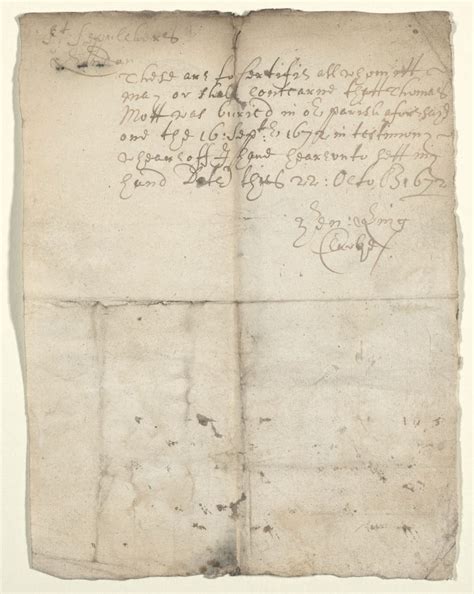 St Sepulchres
London
These are to sertifie all whom itt
may or shall concarne thatt Thomas
Mott was buried in our parish aforesaid
one the 16: Septbr 1672 in testimony
wheareoff I have heareunto sett my
hand Dated this 22: Octob 1672
Hen: King
Clarke